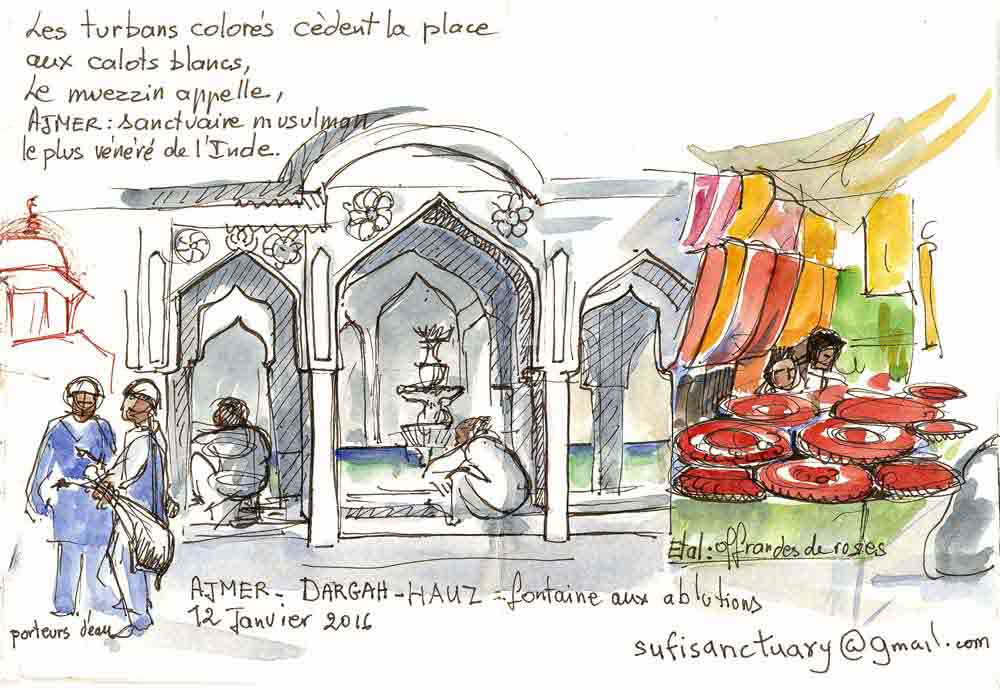 Les turbans colorés cèdent la place
aux calots blancs,
Le muezzin appelle,
AJMER: sanctuaire musulman
le plus vénéré de l'Inde.
Etal: offrandes de roses
AJMER - DARGAH - HAUZ - fontaine aux ablutions
12 Janvier 2016
porteurs d'eau
sufisanctuary@gmail.com